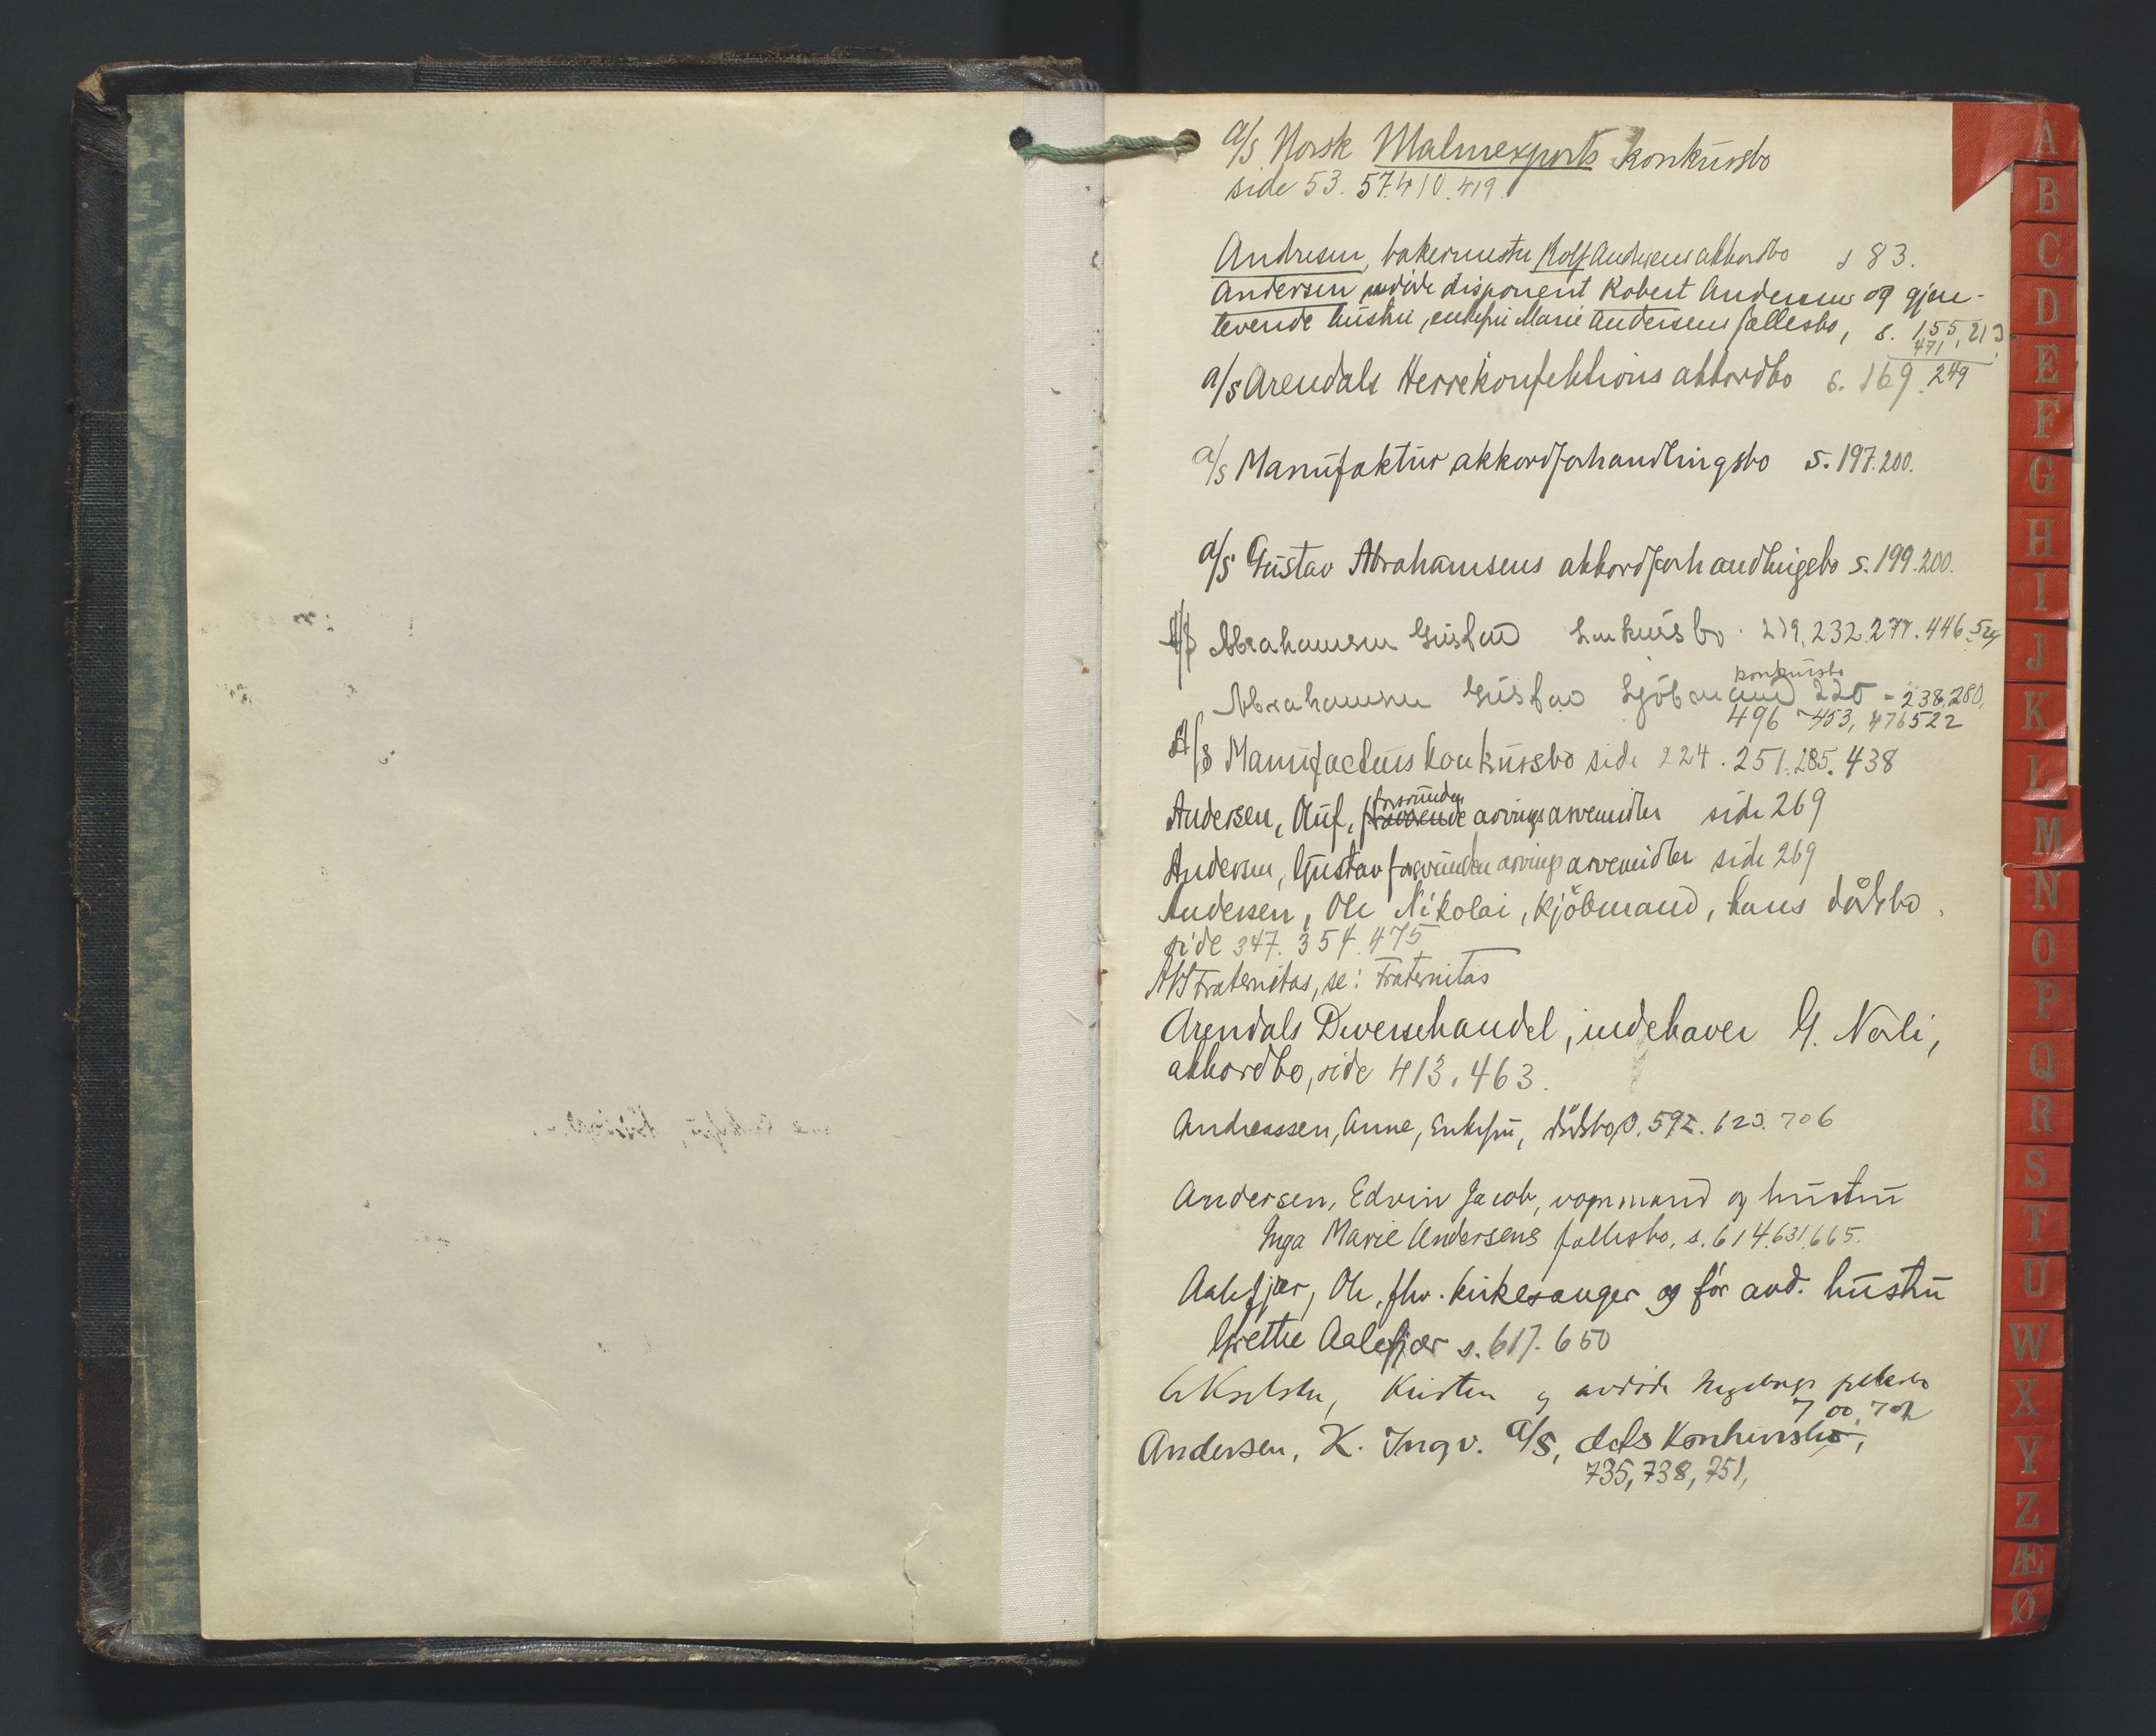 A/S Norsk Malmexports konkursbo
side 53. 57. 410. 419.
Andresen, bakermester Rolf Andresens akkordbo s 83.
Andersen, avdøde disponent Robert Andersens og gjen-
levende hustru, enkefru Marie Andersens fællesbo, s. 155, 213
471
A/S Arendals Herrekonfektions akkordbo s. 169. 249
A/S Manufaktur akkordforhandlingsbo s. 197. 200.
A/S Gustav Abrahamsens akkordforhandlingsbo s. 199. 200.
A/S Abrahamsen Gustav konkursbo. 219, 232. 277. 446.
konkursbo
Abrahamsen Gustav kjøbmand 220 - 238, 280,
496 - 453, 476 522
A/S Manufacturs konkursbo side 224. 251. 285. 438
forsvunden
Andersen, Oluf, arvings arvemidler side 269
Andersen, Gustav forsvunden arvings arvemidler side 269
Andersen, Ole Nikolai, kjöbmand, hans dödsbo,
side 347. 354. 475
A/S Fraternitas, se: Fraternitas
Arendals Diversehandel, indehaver G. Norli,
akkordbo, side 413. 463.
Andreassen, Anne, Enkefru, dödsbo, s. 592. 623. 706
Andersen, Edvin Jacob, vognmand og hustru
Inga Marie Andersens fællesbo, s. 614. 631. 665.
Aalefjær, Ole, fhv. kirkesanger og før avd. hustru
Grethe Aalefjær s. 617. 650
Akselsen, Kristen og avdöde Ingeborgs fellesbo
700, 704
Andersen, K. Ingv. A/S, dets Konkursbo,
735, 738, 751,
A
B
C
D
E
F
G
H
I
J
K
L
M
N
O
P
Q
R
S
T
U
W
X
Y
Z
Æ
Ø